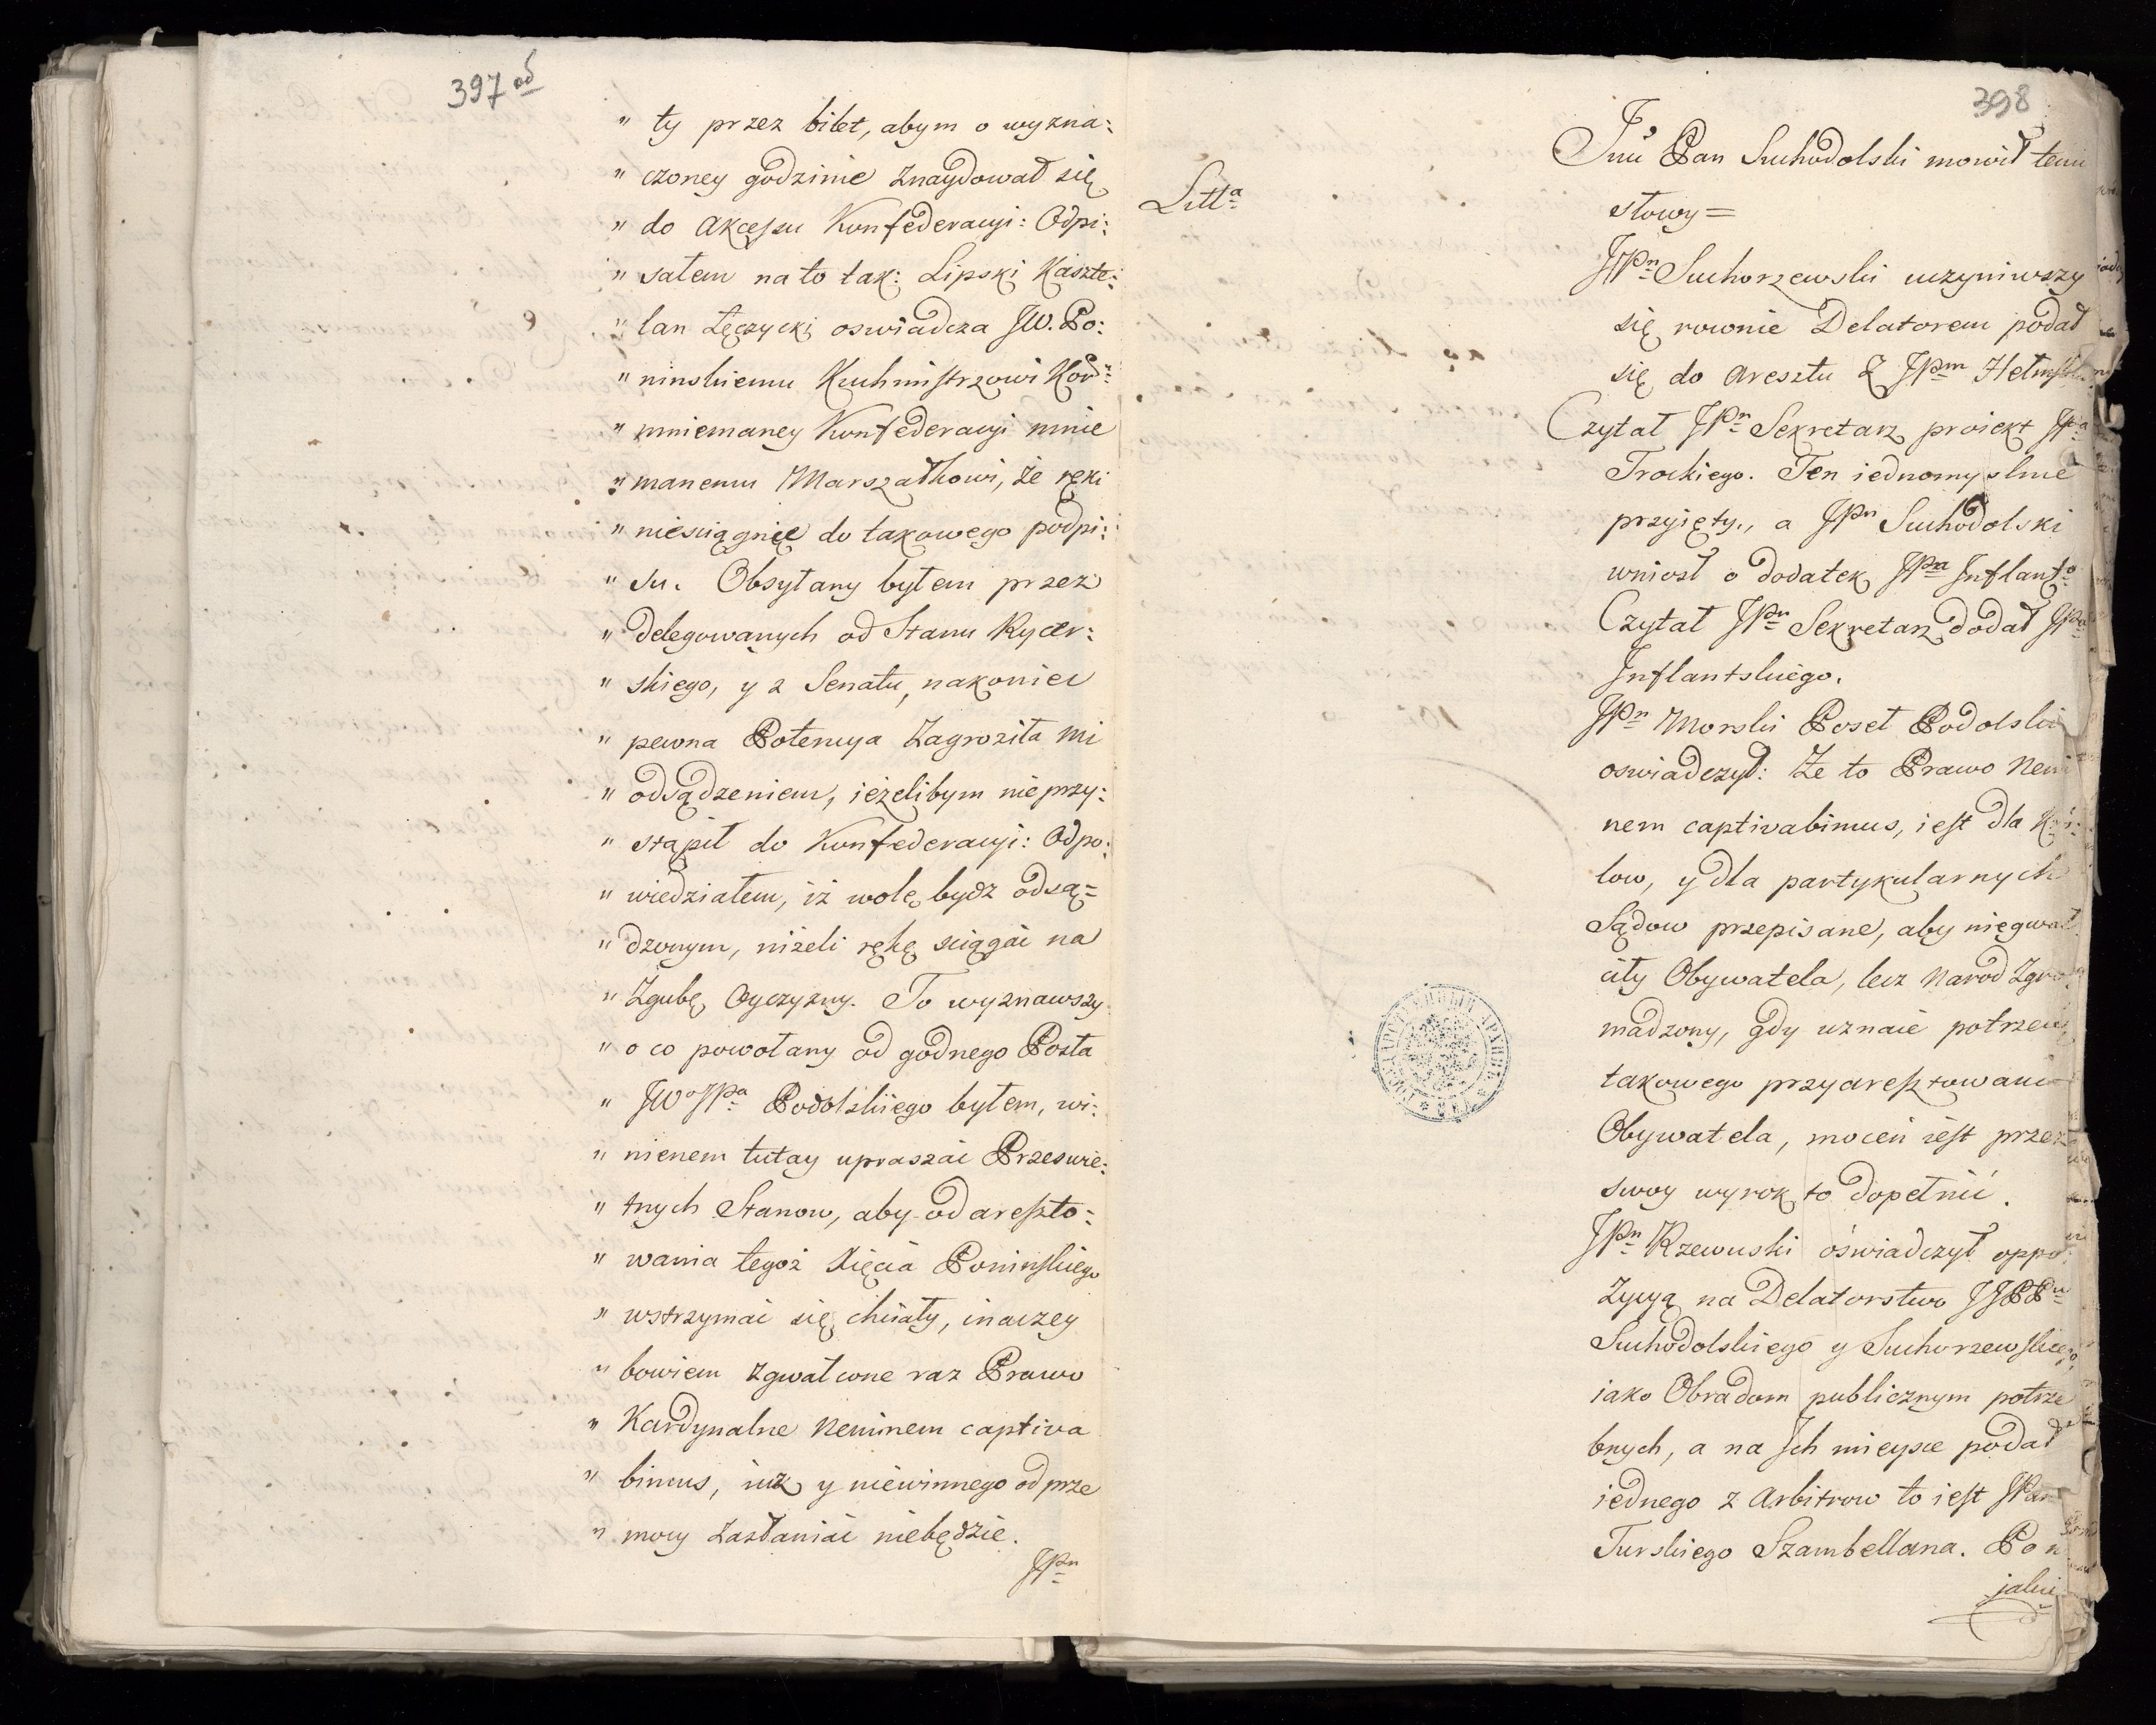 397 об
" ty przez bilet, abym o wyzna:
" czoney godzinie znaydował się
" do akcessu Konfederacyi: Odpi:
" sałem na to tak: Lipski Kaszte:
" lan Łęczycki oswiadcza JW. Po:
" ninskiemu Kuchmistrzowi Kor:
" mniemaney Konfederacyi mnie
" manemu Marszałkowi, że ręki
" niesciągnie do takowego podpi:
" su. Obsyłany byłem przez
" delegowanych od Stanu Rycer:
" skiego, y z Senatu, nakoniec
" pewna Potencya zagroziła mi
" odsądzeniem, ieżelibym nieprzy:
" stąpił do Konfederacyi: Odpo:
" wiedziałem, iż wolę bydz odsą=
" dzonym, niżeli rękę sciągać na
" Zgubę Oyczyzny. To wyznawszy
" o co powołany od godnego Posła
" JWoJPa Podolskiego byłem, wi:
" nienem tutay upraszać Przeswie:
" tnych Stanow, aby od areszto=
" wania tegoż Xięcia Poninskiego
" wstrzymać się chciały, inaczey
" bowiem zgwałcone raz Prawo
" Kardynalne Neminem captiva
" bimus, iuż y niewinnego od prze
" mocy zasłaniać niebędzie.
JPn
398
Litta
Pan Suchodolski mowił temi
słowy=
JPn Suchorzewski uczyniwszy
się rownie Delatorem podał
się do aresztu z JPm
Czytał JPn Sekretarz proiekt JPa
Trockiego. Ten iednomyslnie
przyięty, a JPn Suchodolski
wniosł o dodatek JPa Inflantgo
Czytał JPn Sekretarz dodat JPa
Inflantskiego.
JPn Morski Poseł Podolski
oswiadczył: Że to Prawo Nemi
nem captivabimus, iest dla
low, y dla partykularnych
Sądow przepisane, aby niegwał
ciły Obywatela, lecz Narod Zgro
madzony, gdy uznaie potrzeb
takowego przyaresztowania
Obywatela, mocen iest przez
swoy wyrok to dopełnić.
JPn Rzewuski oświadczył oppo:
zycyą na Delatorstwo JJPPn
Suchodolskiego y Suchorzewskiego
iako Obradom publicznym potrze
bnych, a na Ich mieysce podał
iednego z Arbitrow to iest JPan
Turskiego Szambellana. Pon